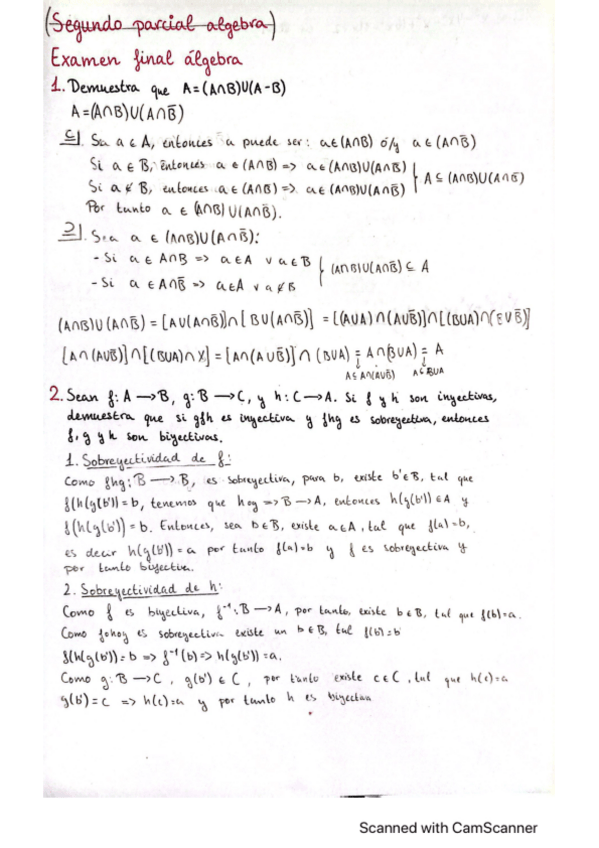 (Segundo parcial algebra)
Examen final álgebra
1. Demuestra que A=(A∩B)U(A-B)
A=(A∩B)U(A∩B̄)
⊆]. Sea a ∈ A, entonces a puede ser: a∈(A∩B) ó/y a∈(A∩B̄)
Si a ∈ B, entonces a ∈ (A∩B) => a∈(A∩B)U(A∩B̄)
Si a ∉ B, entonces a ∈ (A∩B̄) => a∈(A∩B)U(A∩B̄) } A ⊆ (A∩B)U(A∩B̄)
Por tanto a ∈ (A∩B)U(A∩B̄).
⊇]. Sea a ∈ (A∩B)U(A∩B̄):
- Si a ∈ A∩B => a∈A v a∈B
- Si a ∈ A∩B̄ => a∈A v a∉B } (A∩B)U(A∩B̄) ⊆ A
(A∩B)U(A∩B̄) = [AU(A∩B̄)]∩[BU(A∩B̄)] = [(AUA)∩(AUB̄)]∩[(BUA)∩(BUB̄)]
[A∩(AUB̄)]∩[(BUA)∩X] = [A∩(AUB̄)]∩(BUA) = A∩(BUA) = A
A⊆A∩(AUB̄) A⊆BUA
2. Sean f: A→B, g: B→C, y h: C→A. Si f y h son inyectivas,
demuestra que si gfh es inyectiva y fhg es sobreyectiva, entonces
f, g y h son biyectivas.
1. Sobreyectividad de f:
Como fhg: B→B, es sobreyectiva, para b, existe b'∈B, tal que
f(h(g(b'))=b, tenemos que hog => B→A, entonces h(g(b'))∈A y
f(h(g(b'))=b. Entonces, sea b∈B, existe a∈A, tal que f(a)=b,
es decir h(g(b'))=a por tanto f(a)=b y f es sobreyectiva y
por tanto biyectiva.
2. Sobreyectividad de h:
Como f es biyectiva, f⁻¹: B→A, por tanto, existe b∈B, tal que f(b)=a.
Como fohog es sobreyectiva existe un b∈B, tal f(b)=b
f(h(g(b'))=b => f⁻¹(b)=> h(g(b'))=a.
Como g: B→C, g(b')∈C, por tanto existe c∈C, tal que h(c)=a
g(b')=c => h(c)=a y por tanto h es biyectiva
Scanned with CamScanner